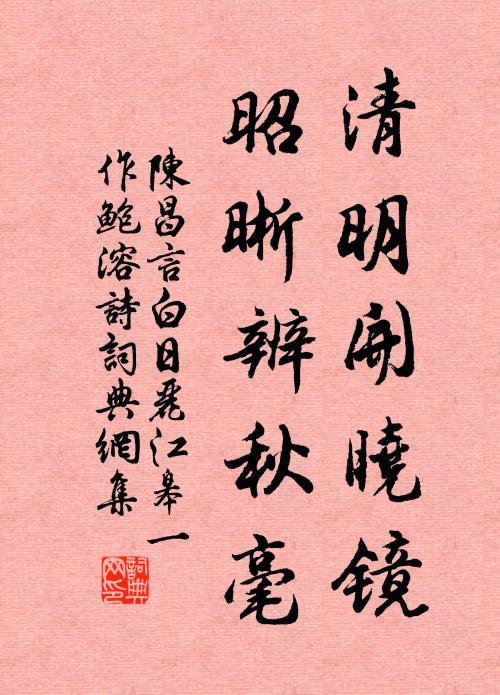 清明開曉鏡
昭晰辨秋毫
陳昌言白日麗江皋一
作鮑溶詩詞典網集
詞典
网印